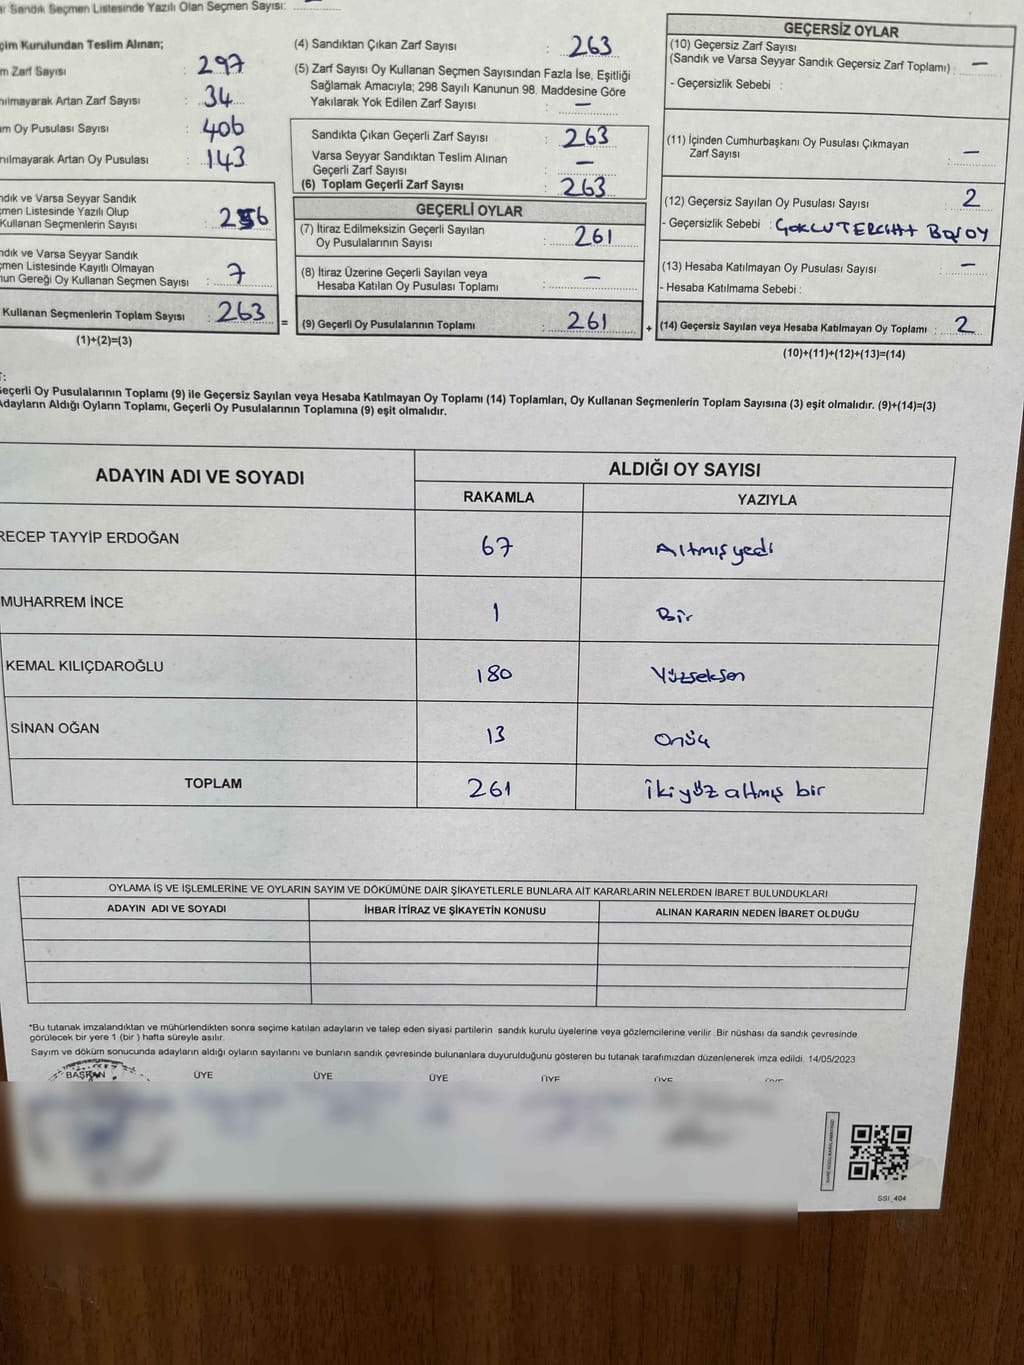 Sandık Seçmen Listesinde Yazılı Olan Seçmen Sayısı:
çim Kurulundan Teslim Alınan;
m Zarf Sayısı : 297
nılmayarak Artan Zarf Sayısı : 34
am Oy Pusulası Sayısı : 406
nılmayarak Artan Oy Pusulası : 143
ndık ve Varsa Seyyar Sandık
çmen Listesinde Yazılı Olup
Kullanan Seçmenlerin Sayısı : 256
ndık ve Varsa Seyyar Sandık
çmen Listesinde Kayıtlı Olmayan
nun Gereği Oy Kullanan Seçmen Sayısı : 7
Kullanan Seçmenlerin Toplam Sayısı : 263
(1)+(2)=(3)
=
(4) Sandıktan Çıkan Zarf Sayısı : 263
(5) Zarf Sayısı Oy Kullanan Seçmen Sayısından Fazla İse, Eşitliği
Sağlamak Amacıyla; 298 Sayılı Kanunun 98. Maddesine Göre
Yakılarak Yok Edilen Zarf Sayısı : —
Sandıkta Çıkan Geçerli Zarf Sayısı : 263
Varsa Seyyar Sandıktan Teslim Alınan
Geçerli Zarf Sayısı : —
(6) Toplam Geçerli Zarf Sayısı : 263
GEÇERLİ OYLAR
(7) İtiraz Edilmeksizin Geçerli Sayılan
Oy Pusulalarının Sayısı : 261
(8) İtiraz Üzerine Geçerli Sayılan veya
Hesaba Katılan Oy Pusulası Toplamı : —
(9) Geçerli Oy Pusulalarının Toplamı : 261
+
GEÇERSİZ OYLAR
(10) Geçersiz Zarf Sayısı
(Sandık ve Varsa Seyyar Sandık Geçersiz Zarf Toplamı) : —
- Geçersizlik Sebebi :
(11) İçinden Cumhurbaşkanı Oy Pusulası Çıkmayan
Zarf Sayısı : —
(12) Geçersiz Sayılan Oy Pusulası Sayısı : 2
- Geçersizlik Sebebi :
(13) Hesaba Katılmayan Oy Pusulası Sayısı : —
- Hesaba Katılmama Sebebi :
(14) Geçersiz Sayılan veya Hesaba Katılmayan Oy Toplamı : 2
(10)+(11)+(12)+(13)=(14)
T:
Geçerli Oy Pusulalarının Toplamı (9) ile Geçersiz Sayılan veya Hesaba Katılmayan Oy Toplamı (14) Toplamları, Oy Kullanan Seçmenlerin Toplam Sayısına (3) eşit olmalıdır. (9)+(14)=(3)
Adayların Aldığı Oyların Toplamı, Geçerli Oy Pusulalarının Toplamına (9) eşit olmalıdır.
ADAYIN ADI VE SOYADI
ALDIĞI OY SAYISI
RAKAMLA YAZIYLA
RECEP TAYYİP ERDOĞAN 67 Altmışyedi
MUHARREM İNCE 1 Bir
KEMAL KILIÇDAROĞLU 180 Yüzseksen
SİNAN OĞAN 13 Onüç
TOPLAM 261 İkiyüz altmış bir
OYLAMA İŞ VE İŞLEMLERİNE VE OYLARIN SAYIM VE DÖKÜMÜNE DAİR ŞİKAYETLERLE BUNLARA AİT KARARLARIN NELERDEN İBARET BULUNDUKLARI
ADAYIN ADI VE SOYADI İHBAR İTİRAZ VE ŞİKAYETİN KONUSU ALINAN KARARIN NEDEN İBARET OLDUĞU
*Bu tutanak imzalandıktan ve mühürlendikten sonra seçime katılan adayların ve talep eden siyasi partilerin sandık kurulu üyelerine veya gözlemcilerine verilir .Bir nüshası da sandık çevresinde
görülecek bir yere 1 (bir ) hafta süreyle asılır.
Sayım ve döküm sonucunda adayların aldığı oyların sayılarını ve bunların sandık çevresinde bulunanlara duyurulduğunu gösteren bu tutanak tarafımızdan düzenlenerek imza edildi. 14/05/2023
BAŞKAN ÜYE ÜYE ÜYE ÜYE ÜYE ÜYE
SSI_404